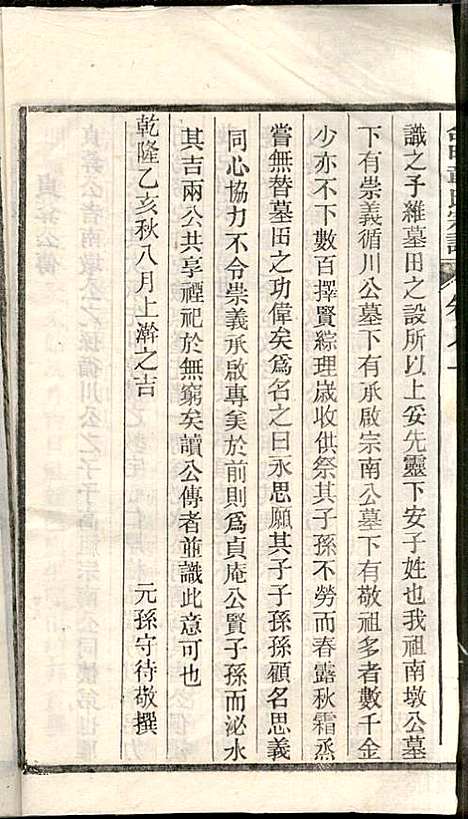 識之予維墓田之設所以上妥先靈下安子姓也我祖南墩公墓
下有崇義循川公墓下有承啟宗南公墓下有敬祖多者數千金
少亦不下數百擇賢綜理歲收供祭其子孫不勞而春露秋霜烝
嘗無替墓田之功偉矣爲名之曰永思願其子子孫孫顧名思義
同心協力不令崇義承啟專美於前則爲貞庵公賢子孫而泌水
其吉兩公共享禋祀於無窮矣讀公傳者並識此意可也
乾隆乙亥秋八月上澣之吉
元孫守待敬撰